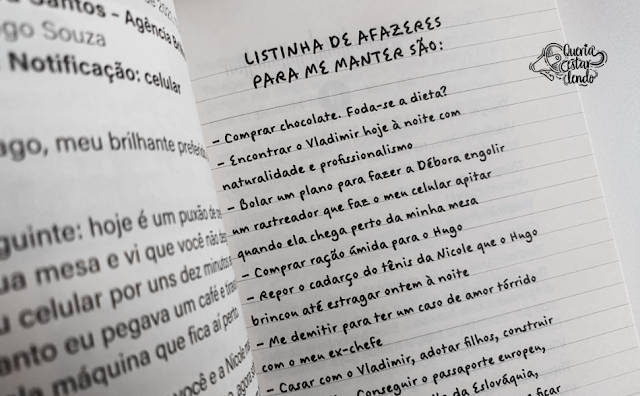 Santos – Agência
ogo Souza
Notificação: celular
ago, meu brilhante
guinte: hoje é um puxão de
ua mesa e vi que você não
u celular por uns dez minutos
anto eu pegava um café e
máquina que fica aí perto
você e a Nicole
LISTINHA DE AFAZERES
PARA ME MANTER SÃO:
– Comprar chocolate. Foda-se a dieta?
– Encontrar o Vladimir hoje à noite com
naturalidade e profissionalismo
– Bolar um plano para fazer a Débora engolir
um rastreador que faz o meu celular apitar
quando ela chega perto da minha mesa
– Comprar ração úmida para o Hugo
– Repor o cadarço do tênis da Nicole que o Hugo
brincou até estragar ontem à noite
– Me demitir para ter um caso de amor tórrido
com o meu ex-chefe
– Casar com o Vladimir, adotar filhos, construir
Conseguir o passaporte europeu,
da Eslováquia,
ficar
Queria
estar
lendo